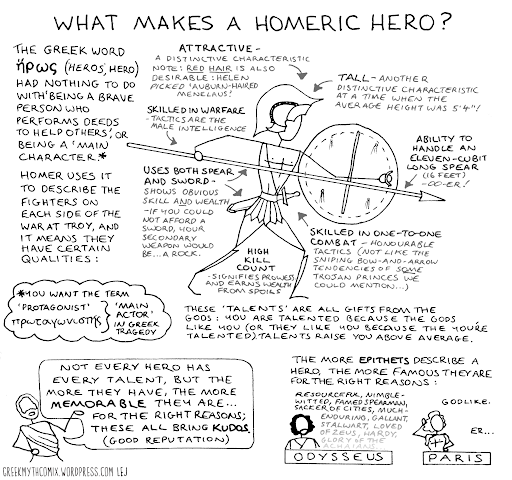 WHAT MAKES A HOMERIC HERO?
THE GREEK WORD
ἥρως (HEROS, HERO)
HAD NOTHING TO DO
WITH 'BEING A BRAVE
PERSON WHO
PERFORMS DEEDS
TO HELP OTHERS', OR
BEING A 'MAIN
CHARACTER'.*
HOMER USES IT
TO DESCRIBE THE
FIGHTERS ON
EACH SIDE OF THE
WAR AT TROY, AND
IT MEANS THEY
HAVE CERTAIN
QUALITIES:
ATTRACTIVE -
A DISTINCTIVE CHARACTERISTIC
NOTE: RED HAIR IS ALSO
DESIRABLE: HELEN
PICKED 'AUBURN-HAIRED
MENELAUS'!
TALL - ANOTHER
DISTINCTIVE CHARACTERISTIC
AT A TIME WHEN THE
AVERAGE HEIGHT WAS 5'4"!
SKILLED IN WARFARE
- TACTICS ARE THE
MALE INTELLIGENCE
ABILITY TO
HANDLE AN
ELEVEN-CUBIT
LONG SPEAR
(16 FEET)
- OO-ER!
USES BOTH SPEAR
AND SWORD -
SHOWS OBVIOUS
SKILL AND WEALTH
- IF YOU COULD
NOT AFFORD A
SWORD, YOUR
SECONDARY
WEAPON WOULD
BE... A ROCK.
HIGH
KILL
COUNT
- SIGNIFIES PROWESS
AND EARNS WEALTH
FROM SPOILS
SKILLED IN ONE-TO-ONE
COMBAT - HONOURABLE
TACTICS (NOT LIKE THE
SNIPING BOW-AND-ARROW
TENDENCIES OF SOME
TROJAN PRINCES WE
COULD MENTION...)
*YOU WANT THE TERM
'PROTAGONIST'
πρωταγωνιστής
'MAIN
ACTOR'
IN GREEK
TRAGEDY
THESE 'TALENTS' ARE ALL GIFTS FROM THE
GODS: YOU ARE TALENTED BECAUSE THE GODS
LIKE YOU (OR THEY LIKE YOU BECAUSE THE YOU'RE
TALENTED). TALENTS RAISE YOU ABOVE AVERAGE.
NOT EVERY HERO HAS
EVERY TALENT, BUT THE
MORE THEY HAVE, THE MORE
MEMORABLE THEY ARE...
FOR THE RIGHT REASONS;
THESE ALL BRING KUDOS.
(GOOD REPUTATION)
THE MORE EPITHETS DESCRIBE A
HERO, THE MORE FAMOUS THEY ARE
FOR THE RIGHT REASONS:
RESOURCEFUL, NIMBLE-
WITTED, FAMED SPEARMAN,
SACKER OF CITIES, MUCH-
ENDURING, GALLANT,
STALWART, LOVED
OF ZEUS, HARDY,
GLORY OF THE
ACHAIANS
ODYSSEUS
GODLIKE.
ER...
PARIS
GREEKMYTHCOMIX.WORDPRESS.COM LEJ